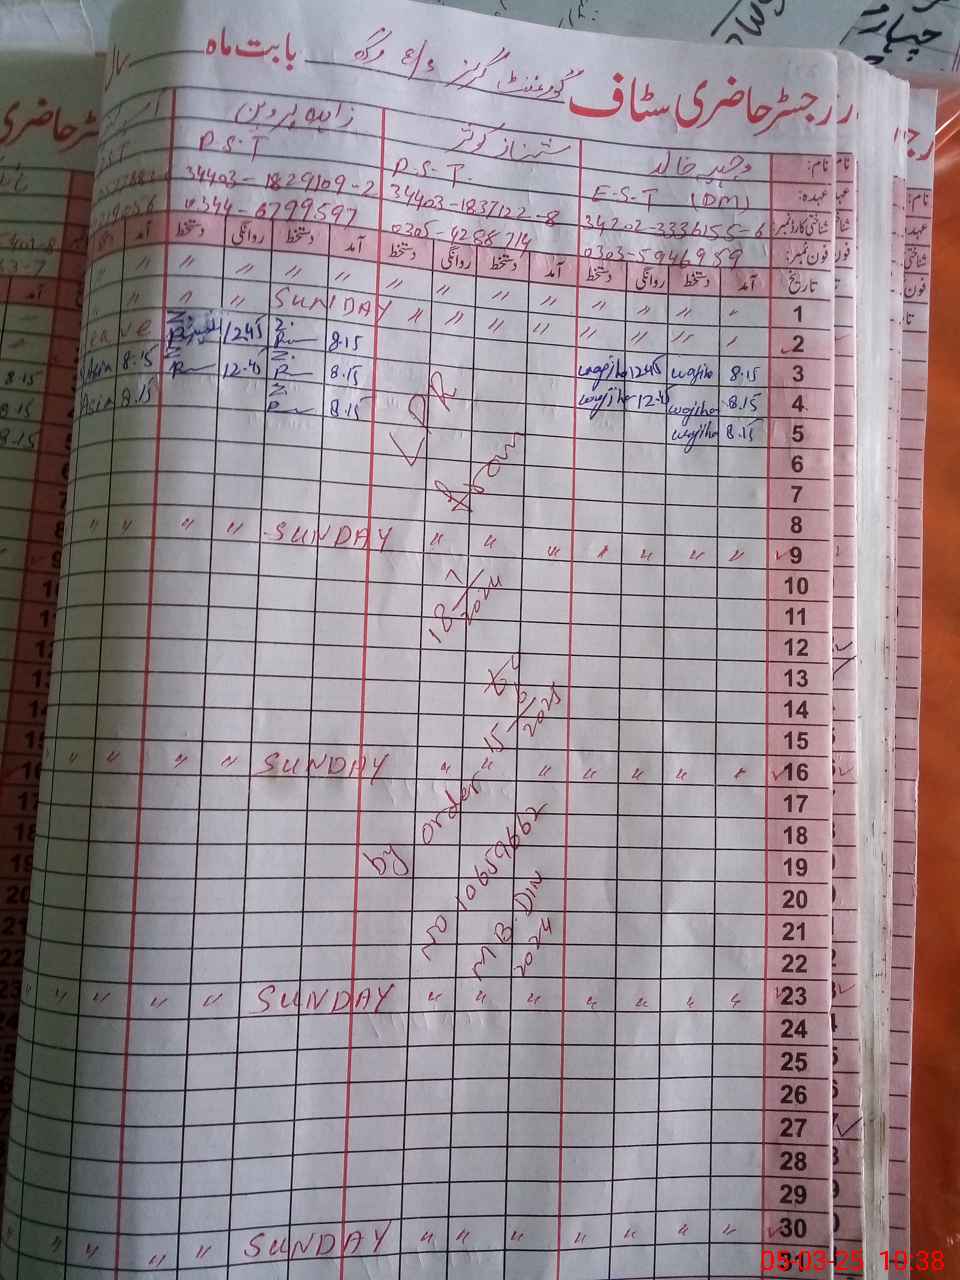 رجسٹر حاضری سٹاف گورنمنٹ گرلز بابت ماہ سال
نام: وجیہہ خالد شہناز کوثر زاہدہ پروین
عہدہ: E.S.T (DM) P.S.T. P.S.T
شناختی کارڈ نمبر: 34202-3336155-6 34403-1837122-8 34403-1829109-2
فون نمبر: 0303-5946959 0305-4288714 0344-6799597
تاریخ آمد دستخط روانگی دستخط آمد دستخط روانگی دستخط آمد دستخط روانگی دستخط آمد
1 " " " " " " " " " " " "
2 " " " " " " " " SUNDAY " " "
3 8.15 wajiha 12.45 wajiha 8.15 Z. 12.45 Z.
4 8.15 wajiha 12.45 wajiha 8.15 Z. 12.45 Z. 8.15 Asia
5 8.15 wajiha 8.15 Z 8.15 Asia
6
7
8
9 " " " " " " " SUNDAY " " " "
10
11
12
13
14
15
16 " " " " " " SUNDAY " " " "
17
18
19
20
21
22
23 " " " " " " " SUNDAY " " " "
24
25
26
27
28
29
30 " " " " " " " SUNDAY " " " "
31
LPR
from
18/7/2024
15/6/2025
by order
NO 10659662
M B DIN
2024
05-03-25 10:38